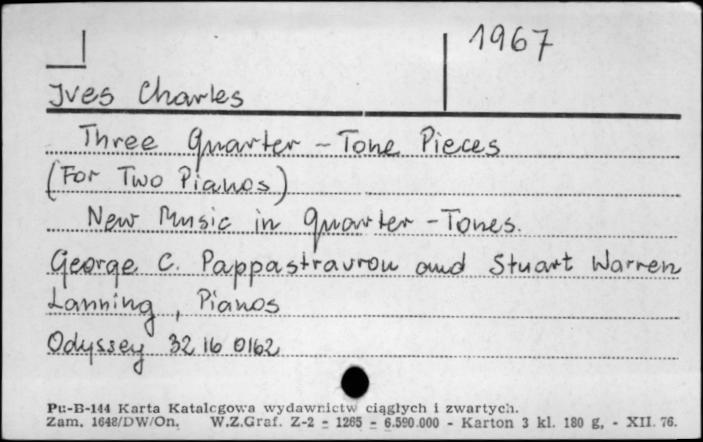 1967
Ives Charles
Three Quarter - Tone Pieces
(For Two Pianos)
New Music in Quarter - Tones.
George C. Pappastravrou and Stuart Warren
Lanning, Pianos
Odyssey 32 16 0162
Pu-B-144 Karta Katalogowa wydawnictw ciągłych i zwartych.
Zam. 1648/DW/On. W.Z.Graf. Z-2 = 1265 = 6.590.000 - Karton 3 kl. 180 g. - XII. 76.